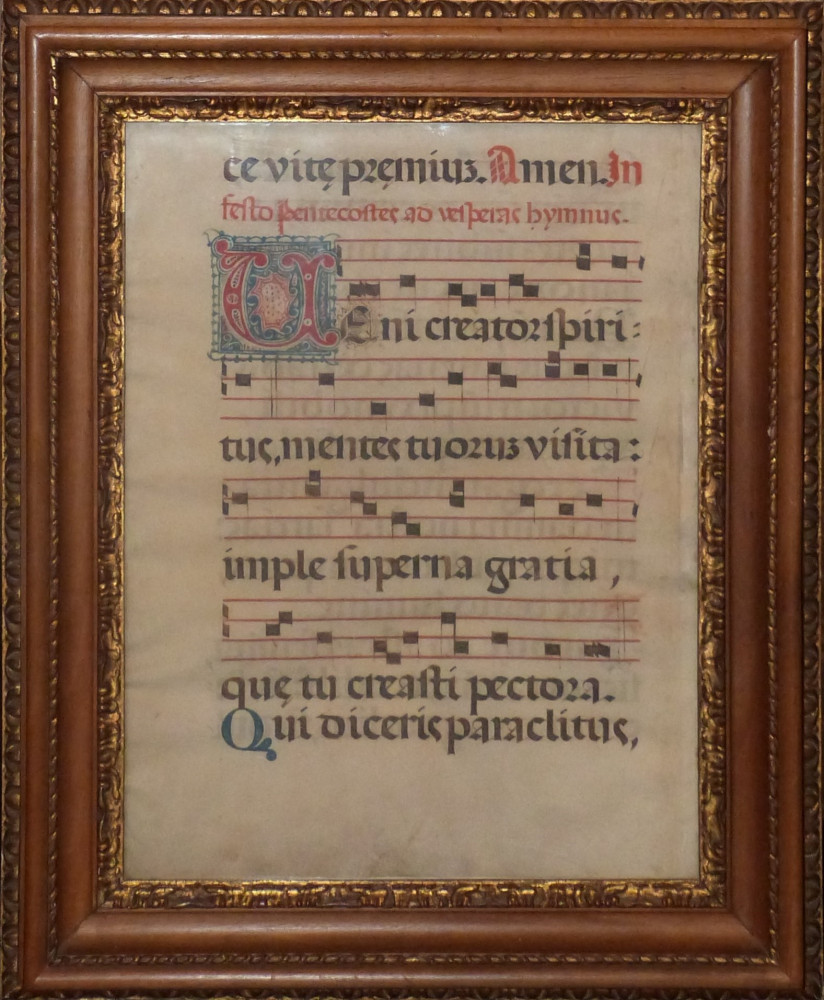 ce vitę pręmiuꝫ. Amen. In
festo pentecostes ad vesperas hymnus.
VEni creator spiri:
tus, mentes tuoruꝫ visita:
imple superna gratia,
quę tu creasti pectora.
Qui diceris paraclitus,